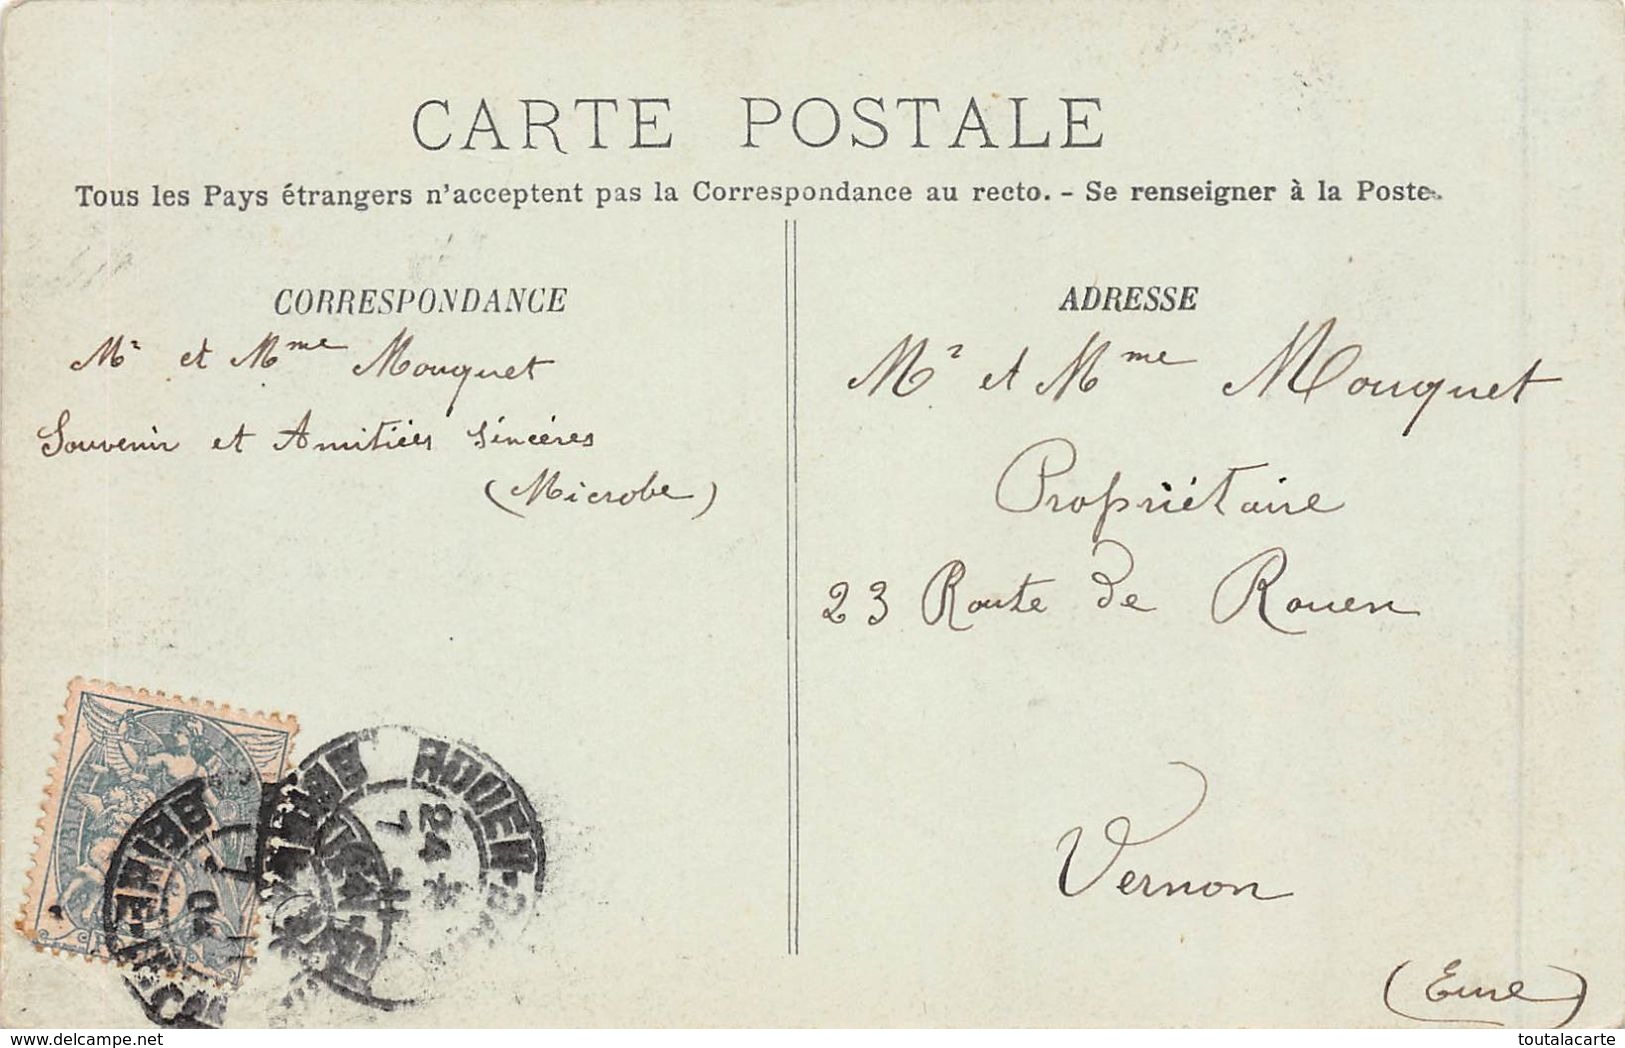 CARTE POSTALE
Tous les Pays étrangers n'acceptent pas la Correspondance au recto. - Se renseigner à la Poste.
CORRESPONDANCE
Mr et Mme Mouquet
Souvenir et Amitiées sincères
(Microbe)
ADRESSE
Mr et Mme Mouquet
Propriétaire
23 Route de Rouen
Vernon
(Eure)
ROUEN
24
www.delcampe.net
toutalacarte